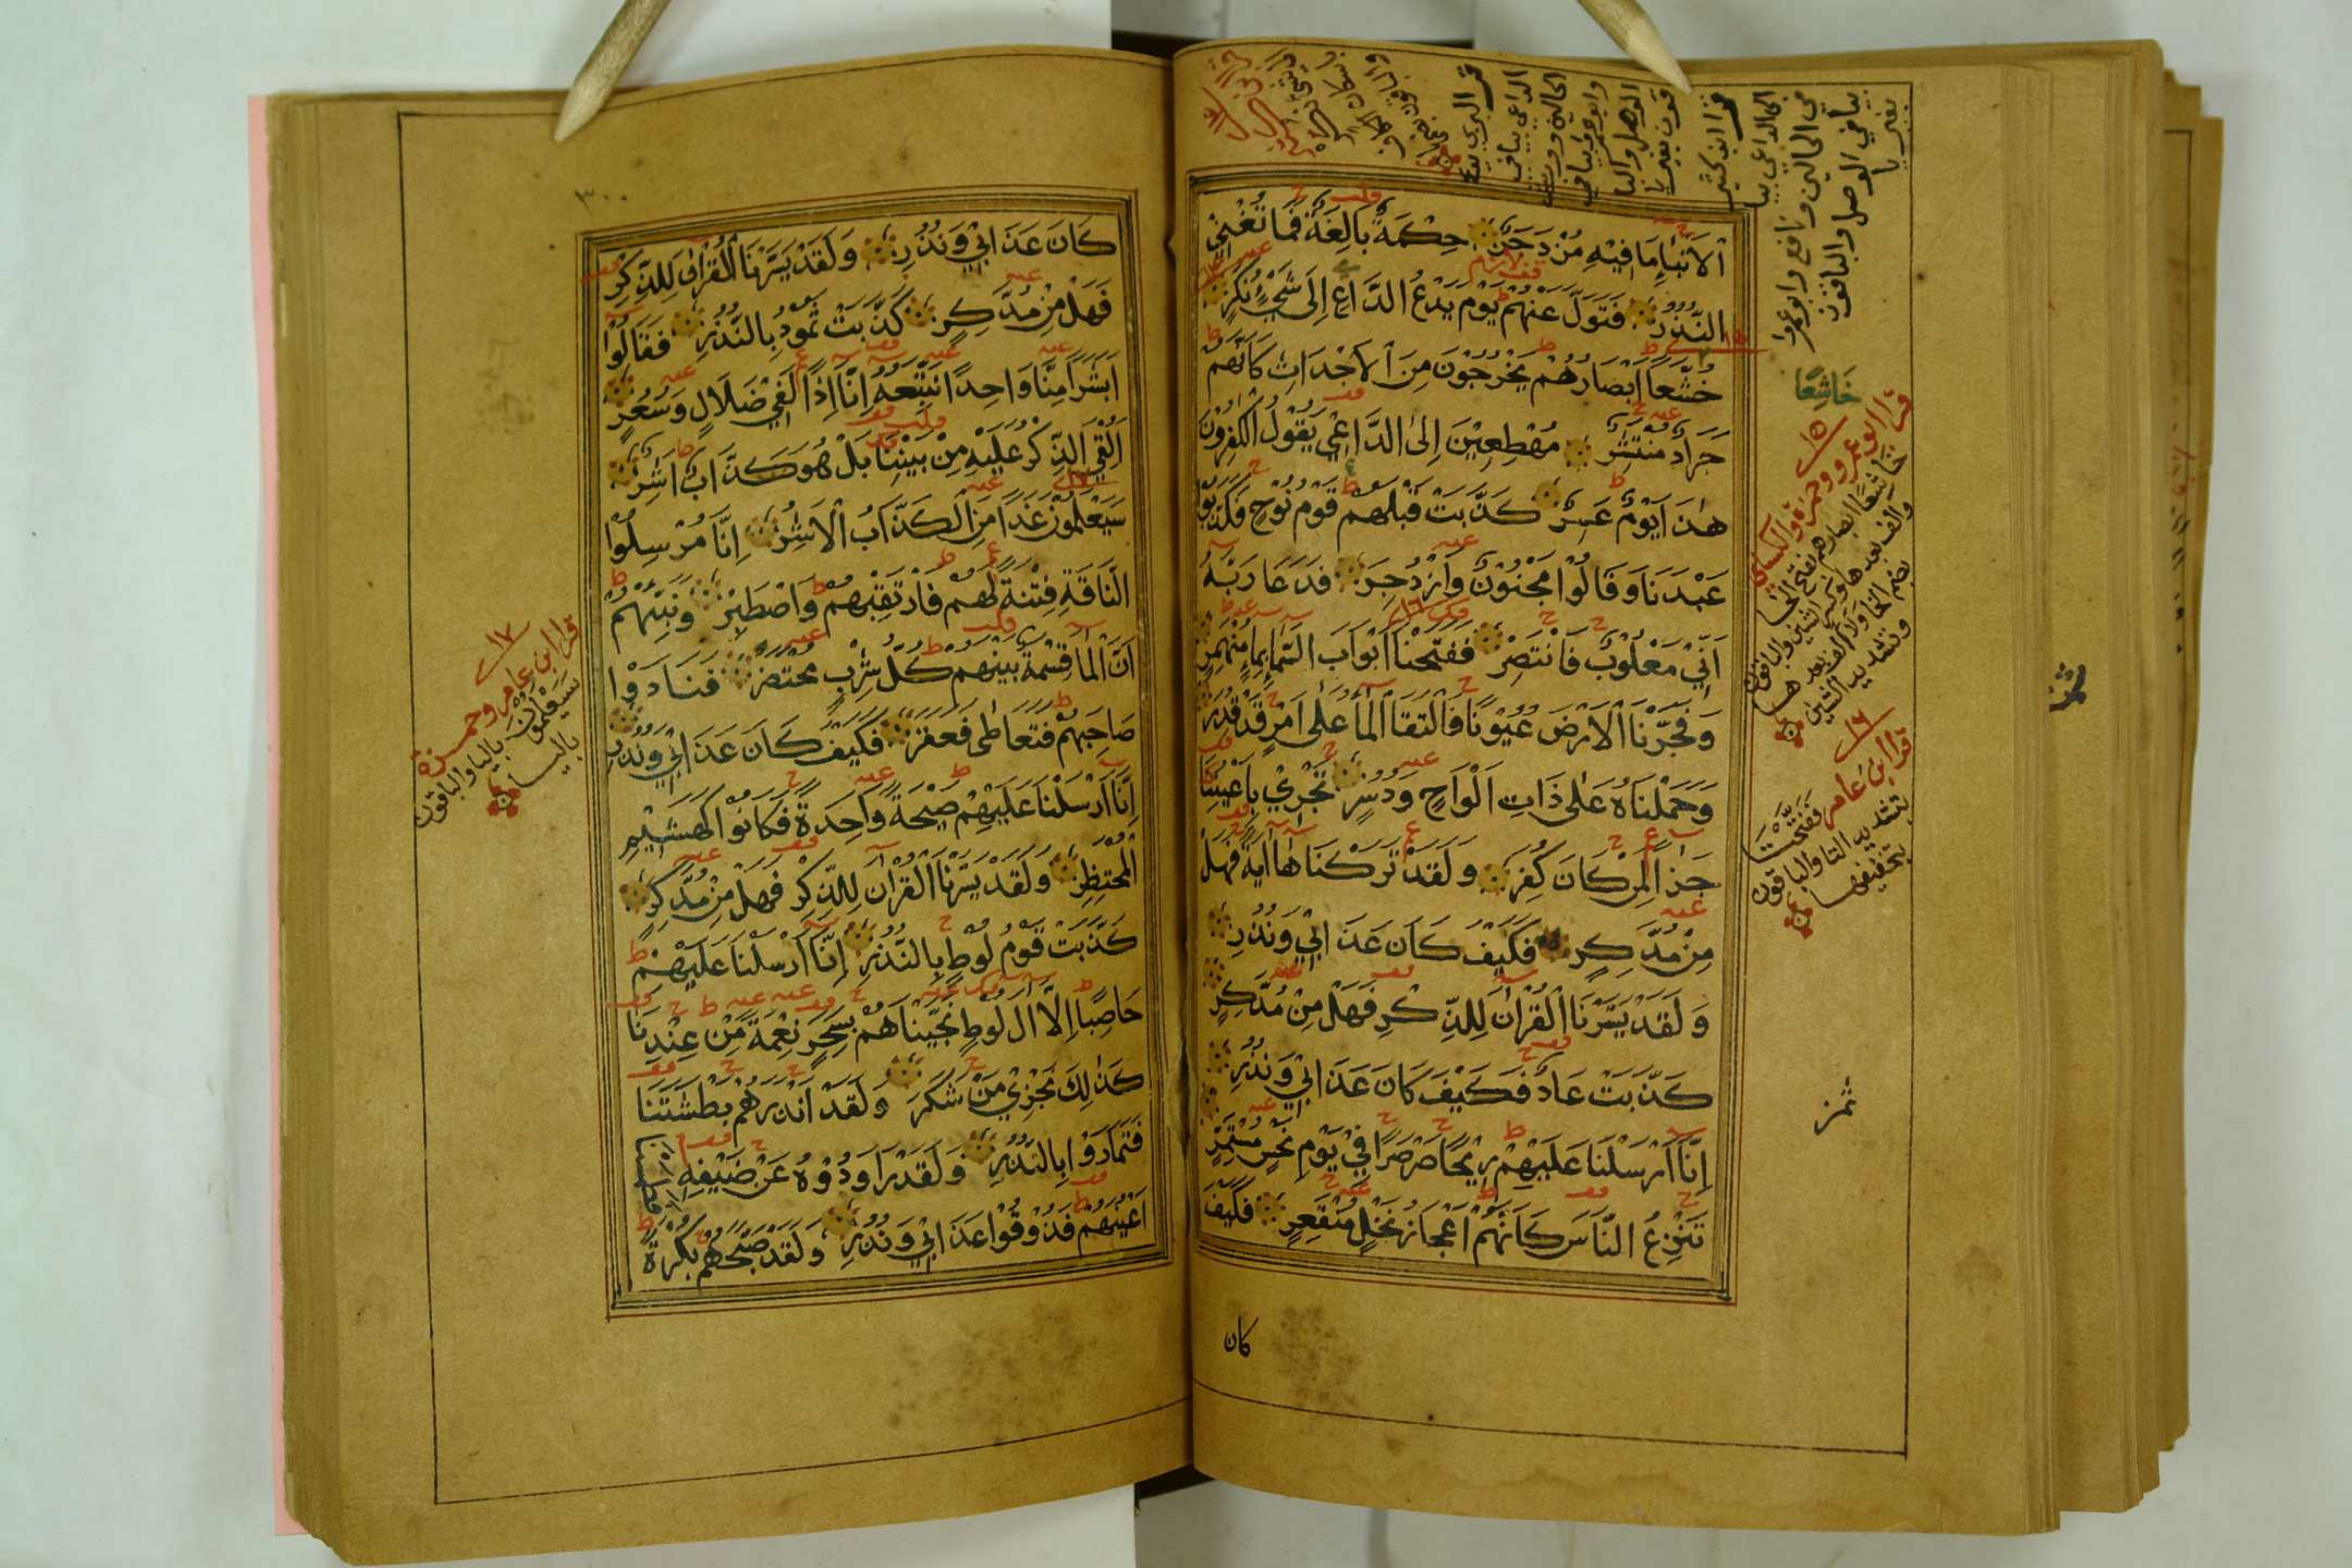 الْاَنْبَاءِ مَا فِيْهِ مُزْدَجَرٌ حِكْمَةٌ بَالِغَةٌ فَمَا تُغْنِي
النُّذُرُ فَتَوَلَّ عَنْهُمْ يَوْمَ يَدْعُ الدَّاعِ اِلَى شَيْءٍ نُكُرٍ
خُشَّعًا اَبْصَارُهُمْ يَخْرُجُوْنَ مِنَ الْاَجْدَاثِ كَاَنَّهُمْ
جَرَادٌ مُنْتَشِرٌ مُهْطِعِيْنَ اِلَى الدَّاعِي يَقُوْلُ الْكٰفِرُوْنَ
هٰذَا يَوْمٌ عَسِرٌ كَذَّبَتْ قَبْلَهُمْ قَوْمُ نُوْحٍ فَكَذَّبُوْا
عَبْدَنَا وَقَالُوْا مَجْنُوْنٌ وَازْدُجِرَ فَدَعَا رَبَّهُ
اَنِّيْ مَغْلُوْبٌ فَانْتَصِرْ فَفَتَحْنَا اَبْوَابَ السَّمَاءِ بِمَاءٍ مُنْهَمِرٍ
وَفَجَّرْنَا الْاَرْضَ عُيُوْنًا فَالْتَقَا الْمَاءُ عَلٰى اَمْرٍ قَدْ قُدِرَ
وَحَمَلْنَاهُ عَلٰى ذَاتِ اَلْوَاحٍ وَدُسُرٍ تَجْرِيْ بِاَعْيُنِنَا
جَزَاءً لِمَنْ كَانَ كُفِرَ وَلَقَدْ تَرَكْنَاهَا اٰيَةً فَهَلْ
مِنْ مُدَّكِرٍ فَكَيْفَ كَانَ عَذَابِيْ وَنُذُرِ
وَلَقَدْ يَسَّرْنَا الْقُرْاٰنَ لِلذِّكْرِ فَهَلْ مِنْ مُدَّكِرٍ
كَذَّبَتْ عَادٌ فَكَيْفَ كَانَ عَذَابِيْ وَنُذُرِ
اِنَّا اَرْسَلْنَا عَلَيْهِمْ رِيْحًا صَرْصَرًا فِيْ يَوْمِ نَحْسٍ مُسْتَمِرٍّ
تَنْزِعُ النَّاسَ كَاَنَّهُمْ اَعْجَازُ نَخْلٍ مُنْقَعِرٍ فَكَيْفَ
كان
خَاشِعًا
١٥
قرا ابو عمرو وحمزة والكسائي
خَاشِعًا ابصارهم بفتح الخا
والف بعدها وكسر الشين والباقون
بضم الخا ولا الف بعدها
وتشديد الشين
١٦
قرا ابن عامر فَفَتَّحْنَا
بتشديد التا والباقون
بتخفيفها
٣٠٠
كَانَ عَذَابِيْ وَنُذُرِ وَلَقَدْ يَسَّرْنَا الْقُرْاٰنَ لِلذِّكْرِ
فَهَلْ مِنْ مُدَّكِرٍ كَذَّبَتْ ثَمُوْدُ بِالنُّذُرِ فَقَالُوْا
اَبَشَرًا مِنَّا وَاحِدًا نَتَّبِعُهُ اِنَّا اِذًا لَفِيْ ضَلَالٍ وَسُعُرٍ
اَءُلْقِيَ الذِّكْرُ عَلَيْهِ مِنْ بَيْنِنَا بَلْ هُوَ كَذَّابٌ اَشِرٌ
سَيَعْلَمُوْنَ غَدًا مَنِ الْكَذَّابُ الْاَشِرُ اِنَّا مُرْسِلُوْا
النَّاقَةِ فِتْنَةً لَهُمْ فَارْتَقِبْهُمْ وَاصْطَبِرْ وَنَبِّئْهُمْ
اَنَّ الْمَاءَ قِسْمَةٌ بَيْنَهُمْ كُلُّ شِرْبٍ مُحْتَضَرٌ فَنَادَوْا
صَاحِبَهُمْ فَتَعَاطٰى فَعَقَرَ فَكَيْفَ كَانَ عَذَابِيْ وَنُذُرِ
اِنَّا اَرْسَلْنَا عَلَيْهِمْ صَيْحَةً وَاحِدَةً فَكَانُوْا كَهَشِيْمِ
الْمُحْتَظِرِ وَلَقَدْ يَسَّرْنَا الْقُرْاٰنَ لِلذِّكْرِ فَهَلْ مِنْ مُدَّكِرٍ
كَذَّبَتْ قَوْمُ لُوْطٍ بِالنُّذُرِ اِنَّا اَرْسَلْنَا عَلَيْهِمْ
حَاصِبًا اِلَّا اٰلَ لُوْطٍ نَجَّيْنَاهُمْ بِسَحَرٍ نِعْمَةً مِنْ عِنْدِنَا
كَذٰلِكَ نَجْزِيْ مَنْ شَكَرَ وَلَقَدْ اَنْذَرَهُمْ بَطْشَتَنَا
فَتَمَارَوْا بِالنُّذُرِ وَلَقَدْ رَاوَدُوْهُ عَنْ ضَيْفِهِ
اَعْيُنَهُمْ فَذُوْقُوْا عَذَابِيْ وَنُذُرِ وَلَقَدْ صَبَّحَهُمْ بُكْرَةً
١٧
قرا ابن عامر وحمزة
سَتَعْلَمُوْنَ بالتا والباقون
باليا